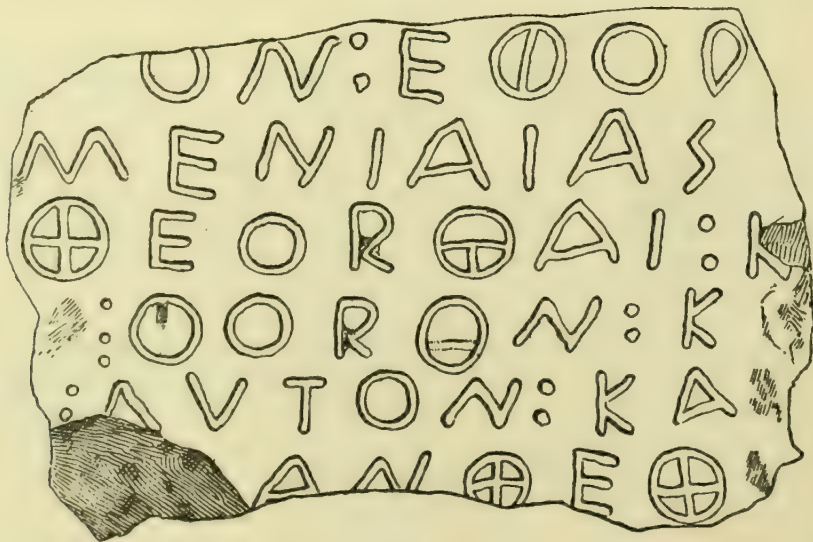 ΟΝ:ΕΦΟΡ
ΜΕΝΙΑΙΑΣ
ΘΕΟΡΘΑΙ:Κ
:ΟΟΡΟΝ:Κ
:ΑΥΤΟΝ:ΚΑ
ΑΝΘΕΘ